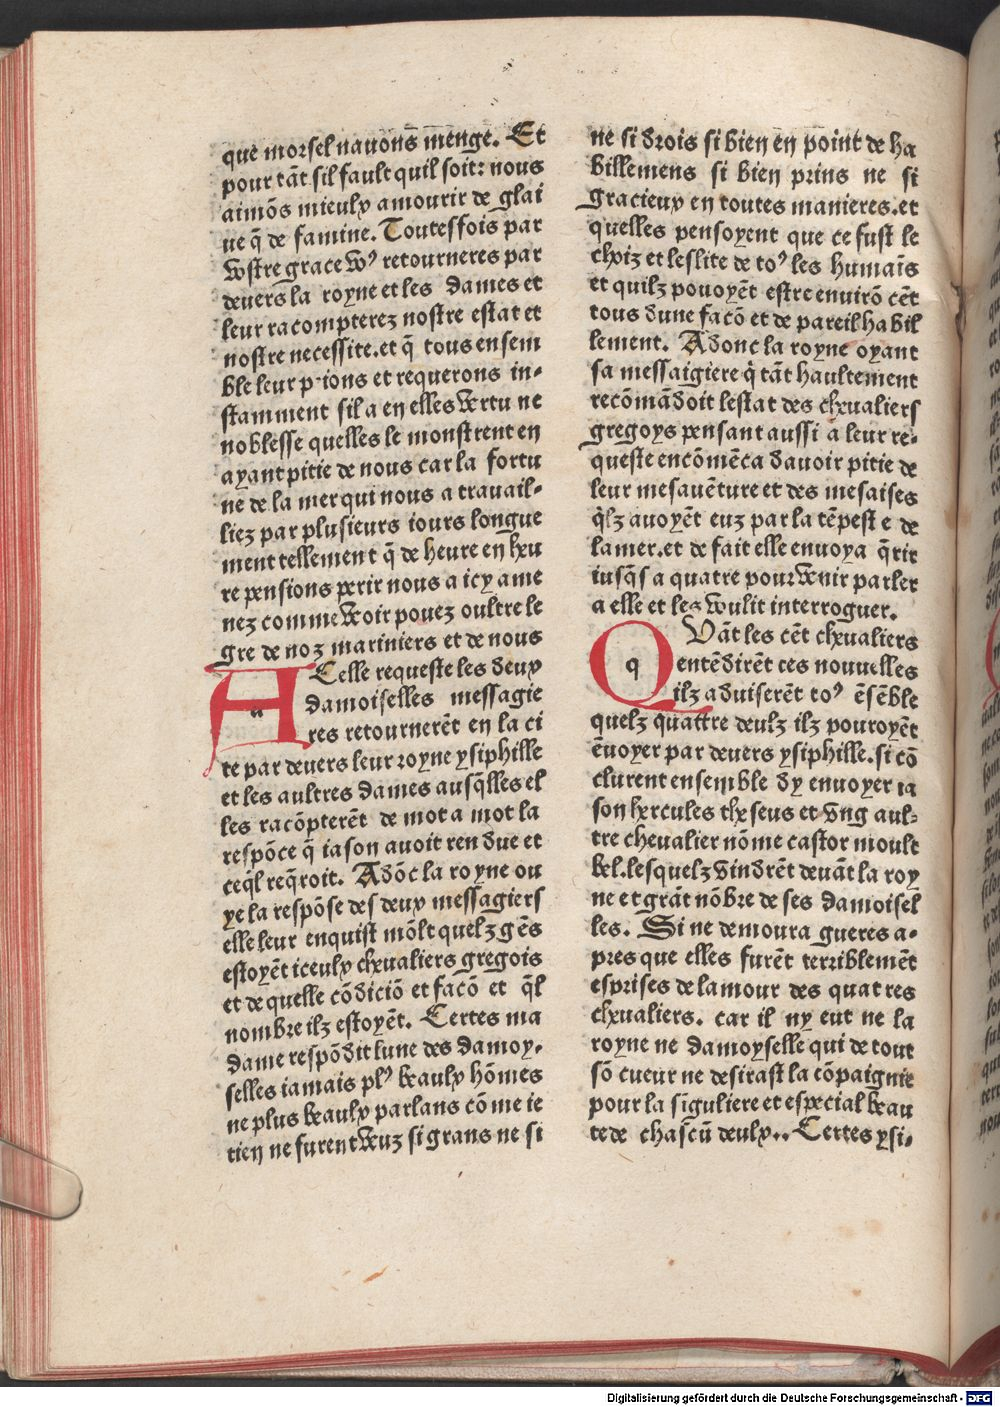 que morsel nauons menge. Et
pour tāt sil fault quil soit: nous
aimōs mieulx amourir de glai
ue q̄ de famine. Toutesfois par
vostre grace vo⁹ retourneres par
deuers la royne et les dames et
leur racompterez nostre estat et
nostre necessite. et q̄ tous ensem
ble leur prions et requerons in-
stamment sil a en elles vertu ne
noblesse quelles le monstrent en
ayant pitie de nous car la fortu
ne de la mer qui nous a trauail-
liez par plusieurs iours longue
ment tellement q̄ de heure en heu
re pensions perir nous a icy ame
nez comme veoir pouez oultre le
gre de noz mariniers et de nous
A Celle requeste les deux
damoiselles messagie
res retournerēt en la ci
te par deuers leur royne ysiphille
et les aultres dames ausq̄lles el
les racōpterēt de mot a mot la
respōce q̄ iason auoit rendue et
ceq̄l req̄roit. Adōc la royne ou
ye la respōse des deux messagiers
elle leur enquist mōlt quelz gēs
estoyēt iceulx cheualiers gregois
et de quelle cōdiciō et facō et q̄l
nombre ilz estoyēt. Certes ma
dame respōdit lune des damoy-
selles iamais pl⁹ beaulx hōmes
ne plus beaulx parlans cōme ie
tien ne furent veuz si grans ne si
ne si drois si bien en point de ha
billemens si bien prins ne si
gracieux en toutes manieres. et
quelles pensoyent que ce fust le
choiz et leslite de to⁹ les humaīs
et quilz pouoyēt estre enuirō cēt
tous dune facō et de pareil habil
lement. Adonc la royne oyant
sa messaigiere q̄ tāt haultement
recōmādoit lestat des cheualiers
gregoys pensant aussi a leur re-
queste encōmēca dauoir pitie de
leur mesauēture et des mesaises
q̄lz auoyēt euz par la tēpeste de
la mer. et de fait elle enuoya q̄rir
iusq̄s a quatre pour venir parler
a elle et les voulit interroguer.
Q Uāt les cēt cheualiers
q entēdirēt ces nouuelles
ilz aduiserēt to⁹ ēsēble
quelz quattre deulz ilz pouroyēt
ēuoyer par deuers ysiphille. si cō
clurent ensemble dy enuoyer ia
son hercules theseus et vng aul-
tre cheualier nōme castor moult
bel. lesquelz vindrēt deuāt la roy
ne et grāt nōbre de ses damoisel
les. Si ne demoura gueres a-
pres que elles furēt terriblemēt
esprises de lamour des quatres
cheualiers. car il ny eut ne la
royne ne damoyselle qui de tout
sō cueur ne desirast la cōpaignie
pour la siguliere et especial beau
te de chascū deulx.. Certes ysi-
Digitalisierung gefördert durch die Deutsche Forschungsgemeinschaft - DFG